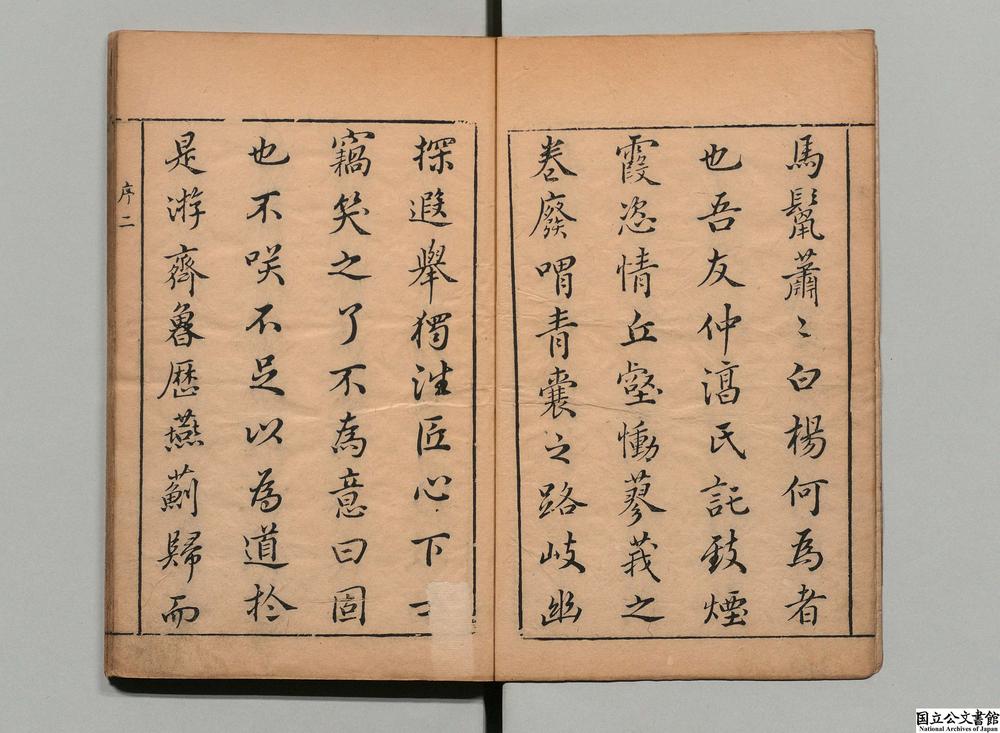 馬鬛蕭〻白楊何為者
也吾友仲淐氏託致煙
霞恣情丘壑慟蓼莪之
巻廢喟青囊之路岐幽
探遐舉獨注匠心下
竊笑之了不為意曰固
也不咲不足以為道扵
是游齊魯歷燕薊歸而
序二
国立公文書館
National Archives of Japan